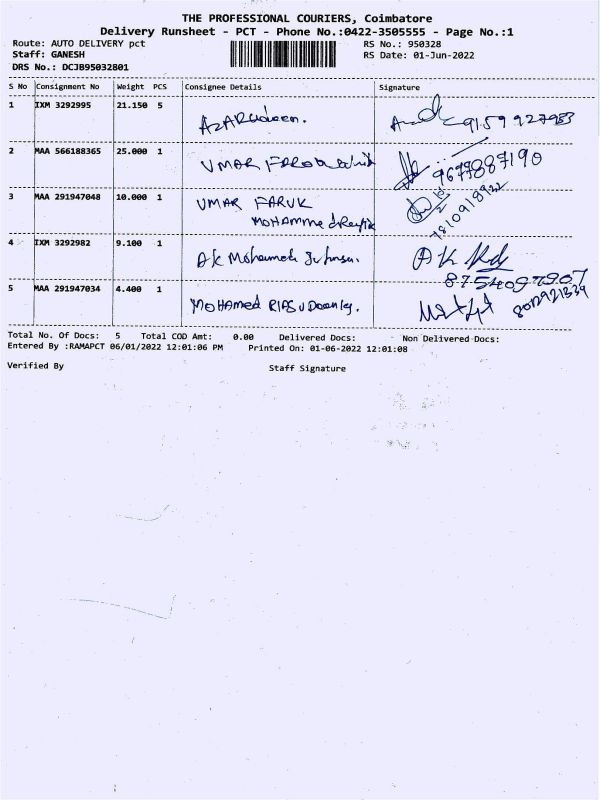 THE PROFESSIONAL COURIERS, Coimbatore
Delivery Runsheet - PCT - Phone No.:0422-3505555 - Page No.:1
Route: AUTO DELIVERY pct RS No.: 950328
Staff: GANESH RS Date: 01-Jun-2022
DRS No.: DCJB95032801
S No Consignment No Weight PCS Consignee Details Signature
1 IXM 3292995 21.150 5
9159927983
2 MAA 566188365 25.000 1 UMAR
9677887190
3 MAA 291947048 10.000 1 UMAR FARUK
MOHAMMed
4 IXM 3292982 9.100 1 AK Mohamed
AK
8754097907
5 MAA 291947034 4.400 1 MOHAMed
Total No. Of Docs: 5 Total COD Amt: 0.00 Delivered Docs: Non Delivered Docs:
Entered By :RAMAPCT 06/01/2022 12:01:06 PM Printed On: 01-06-2022 12:01:08
Verified By Staff Signature